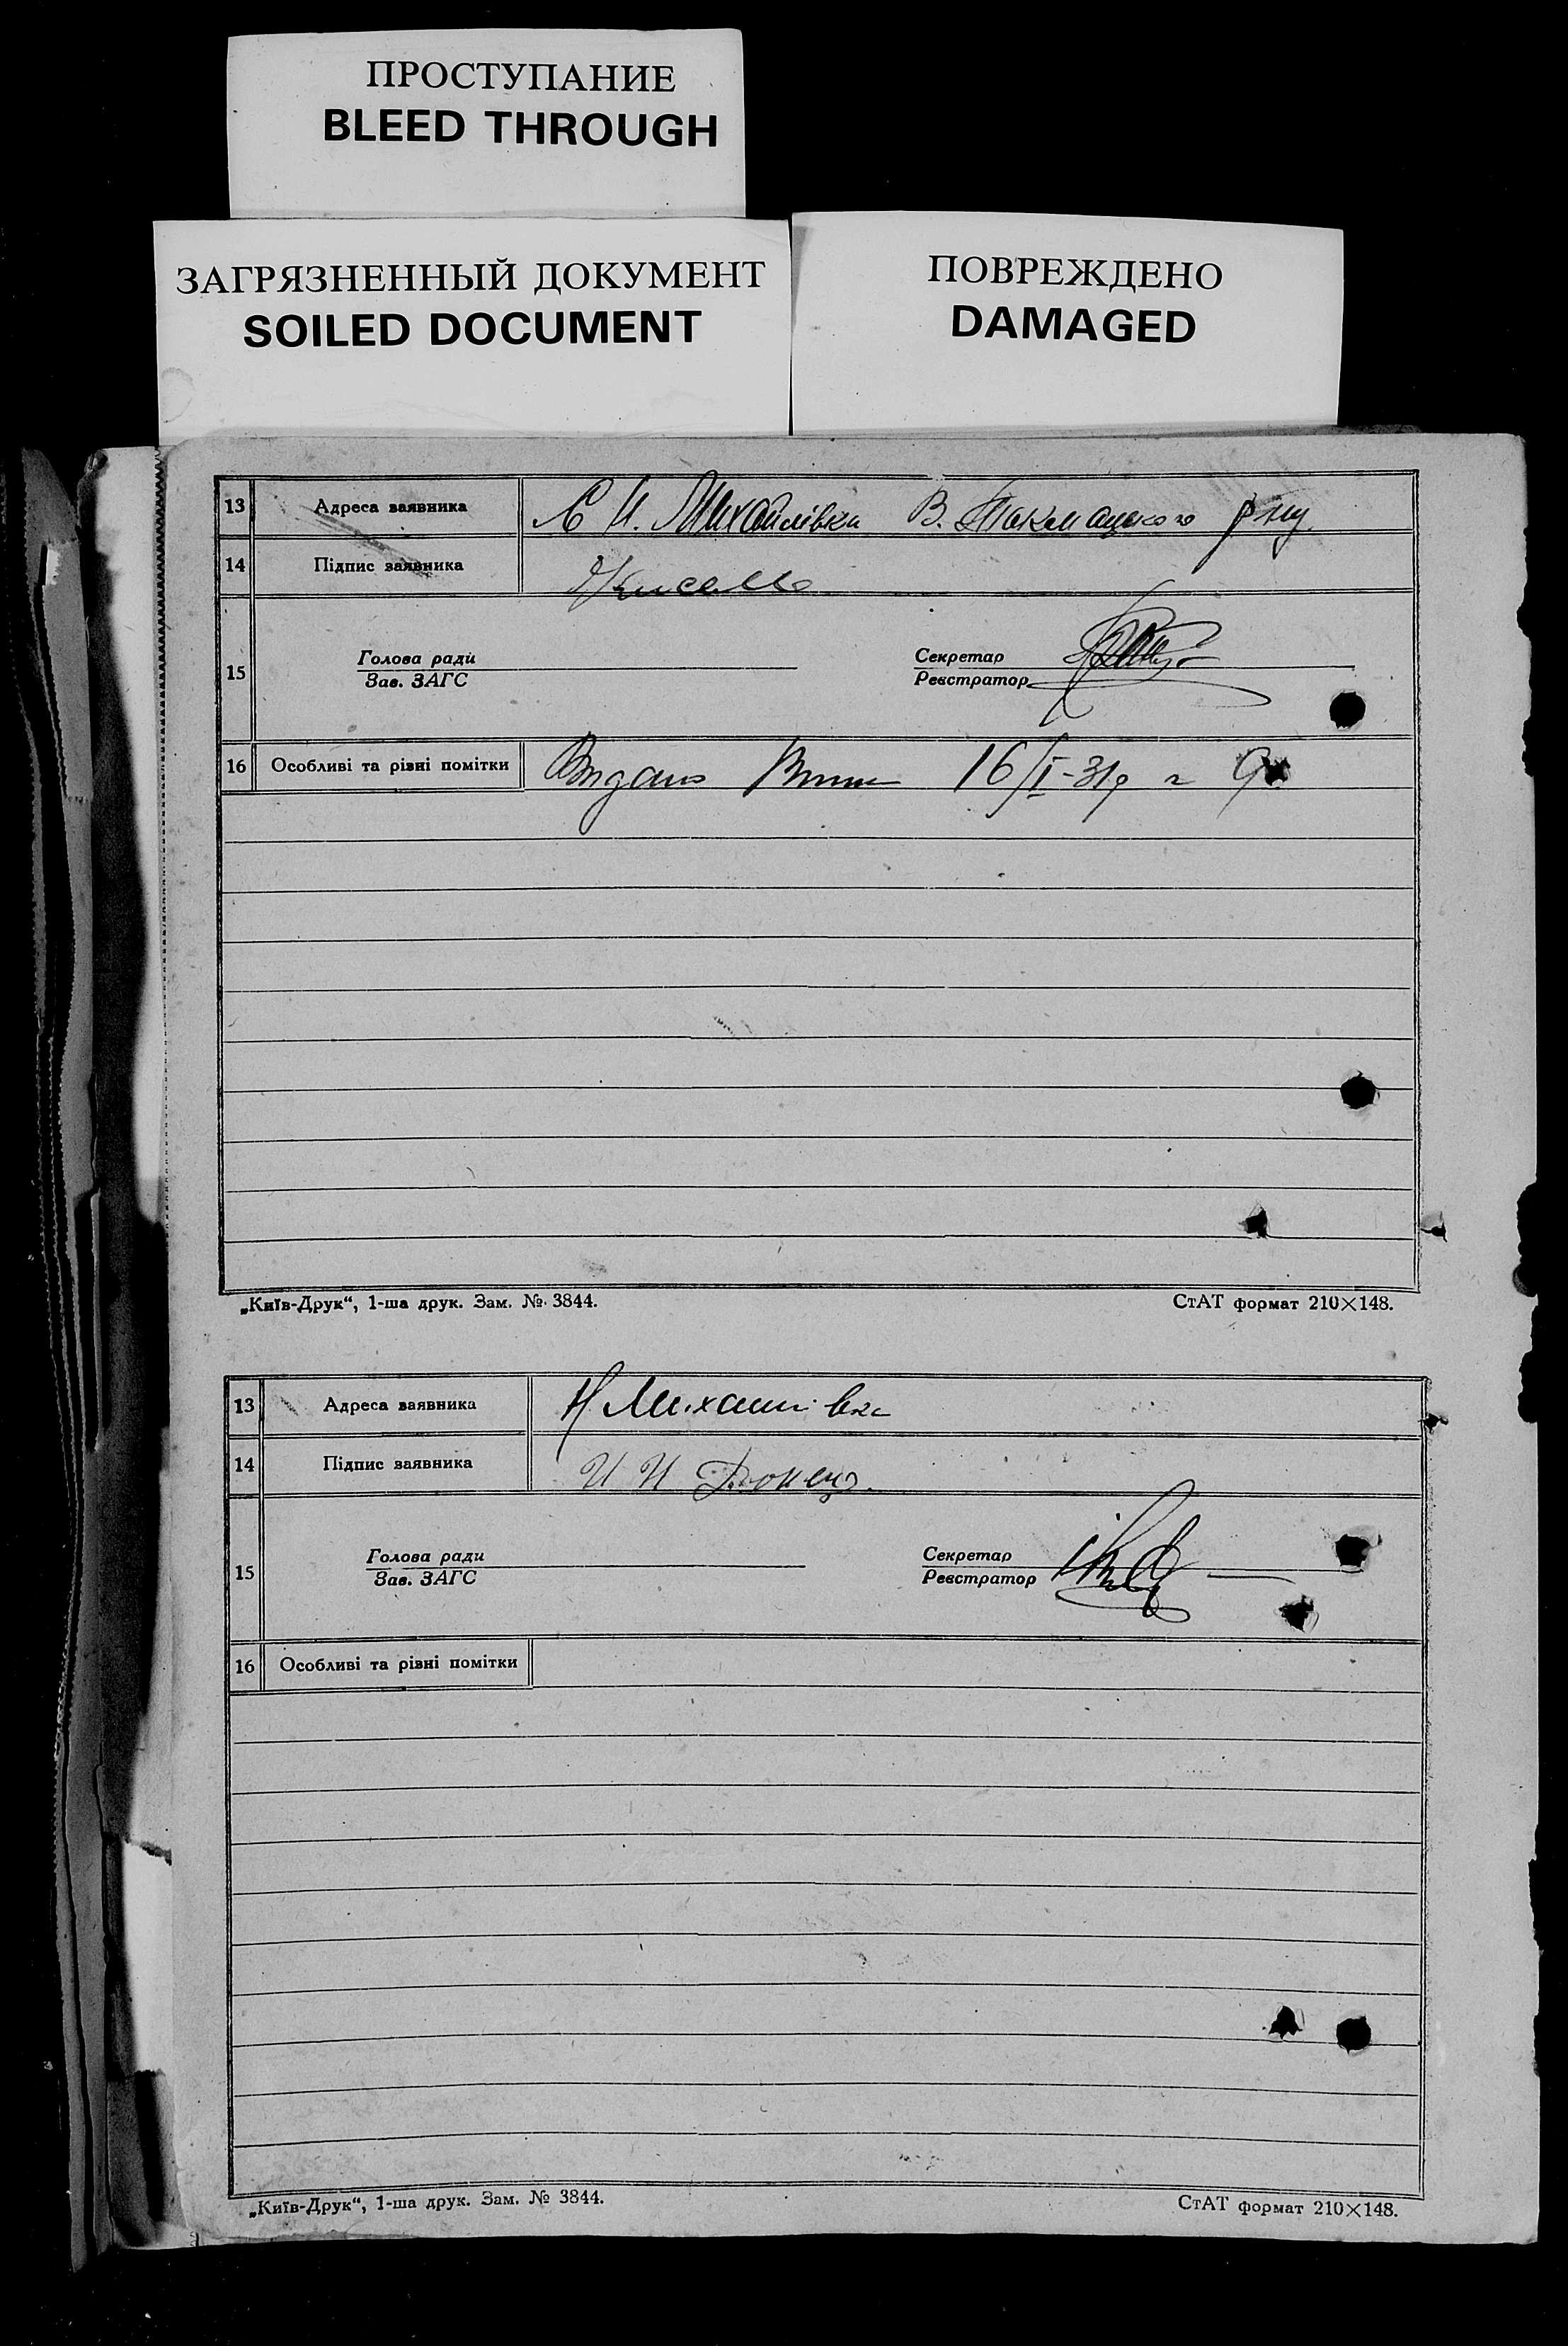 ПРОСТУПАНИЕ
BLEED THROUGH
ЗАГРЯЗНЕННЫЙ ДОКУМЕНТ
SOILED DOCUMENT
ПОВРЕЖДЕНО
DAMAGED
13 Адреса заявника С Н. Михайлівка В. Токмацького р-ну
14 Підпис заявника
15 Голова ради Секретар
Зав. ЗАГС Реєстратор
16 Особливі та різні помітки Видано 16/I-31р
„Київ-Друк“, 1-ша друк. Зам. № 3844. СтАТ формат 210×148.
13 Адреса заявника Н Михайлівка
14 Підпис заявника И И Донец
15 Голова ради Секретар
Зав. ЗАГС Реєстратор
16 Особливі та різні помітки
„Київ-Друк“, 1-ша друк. Зам. № 3844. СтАТ формат 210×148.